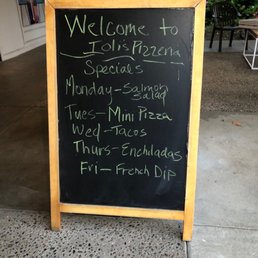 Welcome to
Ioli's Pizzeria
Specials
Monday - Salmon
Salad
Tues - Mini Pizza
Wed - Tacos
Thurs - Enchiladas
Fri - French Dip